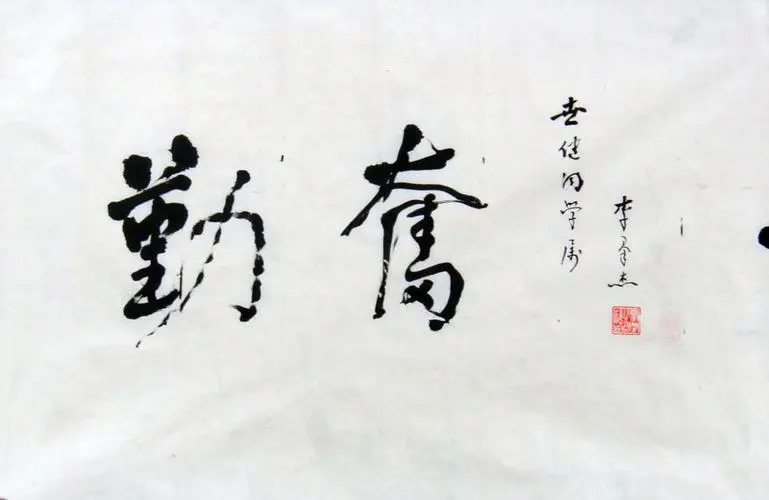 勤奮
世健同学属
李群杰